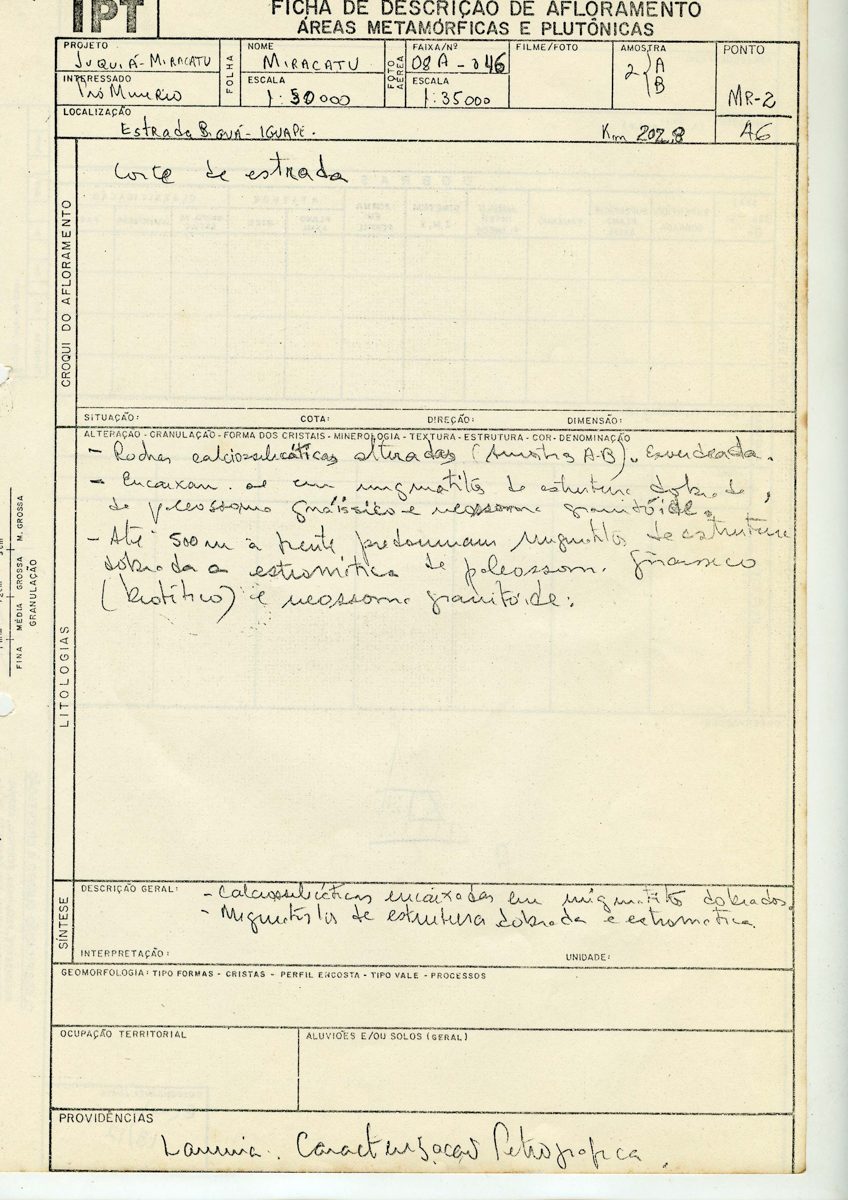 IPT
FICHA DE DESCRIÇÃO DE AFLORAMENTO
ÁREAS METAMÓRFICAS E PLUTÔNICAS
PROJETO
JUQUIÁ-MIRACATU
INTERESSADO
Pró Minério
FOLHA
NOME
MIRACATU
ESCALA
1:50000
FOTO AÉREA
FAIXA/Nº
08A-046
ESCALA
1:35000
FILME/FOTO
AMOSTRA
2 { A
B
PONTO
MR-2
A6
LOCALIZAÇÃO
Estrada Biguá-IGUAPE.
Km 202,8
CROQUI DO AFLORAMENTO
Corte de estrada
SITUAÇÃO: COTA: DIREÇÃO: DIMENSÃO:
LITOLOGIAS
ALTERAÇÃO - GRANULAÇÃO - FORMA DOS CRISTAIS - MINEROLOGIA - TEXTURA - ESTRUTURA - COR - DENOMINAÇÃO
- Rochas calciossilicáticas alteradas (Amostras A-B). Esverdeada.
- Encaixam-se em migmatitos de estrutura dobrada,
de paleossoma gnáissico e neossoma granitóide.
- Até 500m à frente predominam migmatitos de estrutura
dobrada a estromática de paleossoma gnáissico
(biotítico) e neossoma granitóide.
FINA MÉDIA GROSSA M. GROSSA
GRANULAÇÃO
SÍNTESE
DESCRIÇÃO GERAL:
- Calciossilicáticas encaixadas em migmatitos dobrados.
- Migmatitos de estrutura dobrada e estromática.
INTERPRETAÇÃO: UNIDADE:
GEOMORFOLOGIA: TIPO FORMAS - CRISTAS - PERFIL ENCOSTA - TIPO VALE - PROCESSOS
OCUPAÇÃO TERRITORIAL
ALUVIÕES E/OU SOLOS (GERAL)
PROVIDÊNCIAS
Lamina. Caracterização Petrográfica.